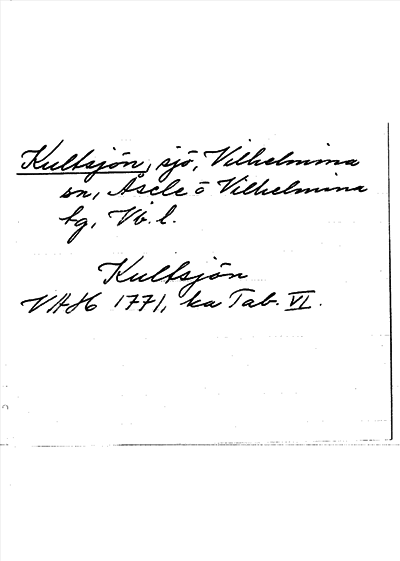 Kultsjön, sjö, Vilhelmina
sn, Åsele o Vilhelmina
tg, Vb. l.
Kultsjön
VAH 1771, ka Tab. VI.